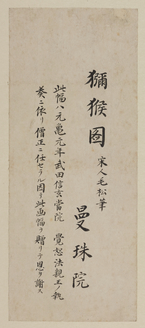 獼猴図 宋人毛松筆
曼珠院
此幅ハ元亀元年武田信玄当院 覚恕法親王ノ執
奏ニ依リ僧正ニ任セラル因リ此画幅ヲ贈リテ恩ヲ謝ス